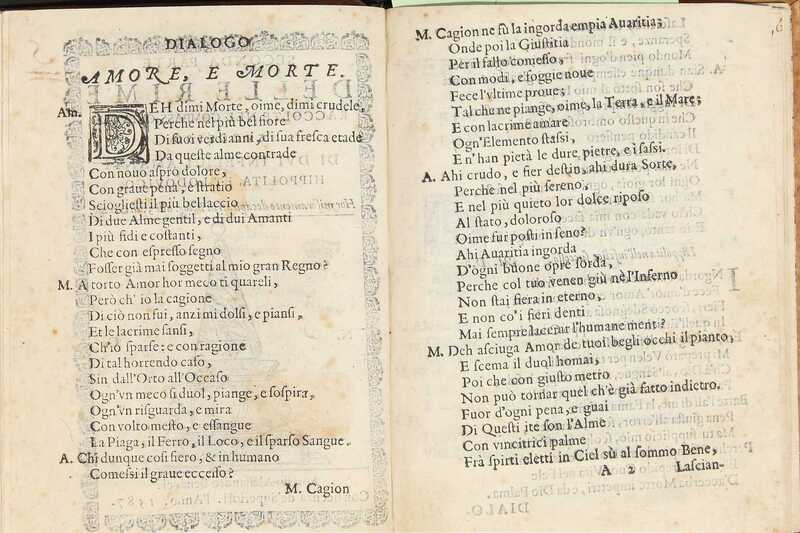 DIALOGO
AMORE, E MORTE.
Am. DEH dimi Morte, oime, dimi crudele,
Perche nel più bel fiore
Di suoi verdi anni, di sua fresca etade
Da queste alme contrade
Con nouo aspro dolore,
Con graue pena, e stratio
Sciogliesti il più bel laccio
Di due Alme gentil, e di dui Amanti
I più fidi e costanti,
Che con espresso segno
Fosser già mai soggetti al mio gran Regno?
M. A torto Amor hor meco ti quareli,
Però ch' io la cagione
Di ciò non fui, anzi mi dolsi, e piansi,
Et le lacrime sansi,
Ch'iò sparse: e con ragione
Di tal horrendo caso,
Sin dall'Orto all'Occaso
Ogn'vn meco si duol, piange, e sospira,
Ogn'vn risguarda, e mira
Con volto mesto, e essangue
La Piaga, il Ferro, il Loco, e il sparso Sangue.
A. Chi dunque cosi fiero, & in humano
Comessi il graue eccesso?
M. Cagion
6
M. Cagion ne fù la ingorda empia Auaritia;
Onde poi la Giustitia
Per il fallo comesso,
Con modi, e foggie noue
Fece l'vltime proue;
Tal che ne piange, oime, la Terra, e il Mare;
E con lacrime amare
Ogn'Elemento stassi,
E n'han pietà le dure pietre, e i sassi.
A. Ahi crudo, e fier destin, ahi dura Sorte,
Perche nel più sereno,
E nel più quieto lor dolce riposo
Al stato, doloroso
Oime fur posti in seno?
Ahi Auaritia ingorda
D'ogni buone opre sorda,
Perche col tuo venen giù nèl'Inferno
Non stai fiera in eterno,
E non co'i fieri denti
Mai sempre lacerar l'humane menti?
M. Deh asciuga Amor de tuoi begli occhi il pianto,
E scema il duol homai,
Poi che con giusto metro
Non può tornar quel ch'è già fatto indietro.
Fuor d'ogni pena, e guai
Di Questi ite son l'Alme
Con vincitrici palme
Frà spirti eletti in Ciel sù al sommo Bene,
A 2 Lascian-